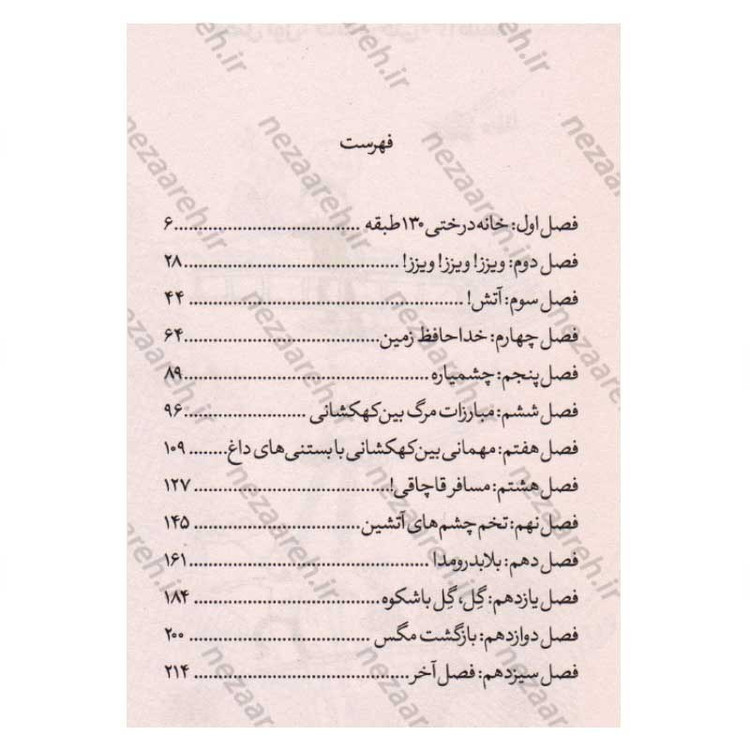 فهرست
فصل اول: خانه درختی ۱۳۰ طبقه ................................ ۶
فصل دوم: ویزز! ویزز! ویزز! .................................... ۲۸
فصل سوم: آتش! .............................................. ۴۴
فصل چهارم: خداحافظ زمین................................. ۶۴
فصل پنجم: چشمیاره ................................................ ۸۹
فصل ششم: مبارزات مرگ بین‌کهکشانی .................... ۹۶
فصل هفتم: مهمانی بین‌کهکشانی با بستنی‌های داغ........ ۱۰۹
فصل هشتم: مسافر قاچاقی!................................. ۱۲۷
فصل نهم: تخم چشم‌های آتشین............................ ۱۴۵
فصل دهم: بلابدرومدا ........................................ ۱۶۱
فصل یازدهم: گِل، گِل باشکوه ............................... ۱۸۴
فصل دوازدهم: بازگشت مگس .............................. ۲۰۰
فصل سیزدهم: فصل آخر...................................... ۲۱۴
nezaareh.ir